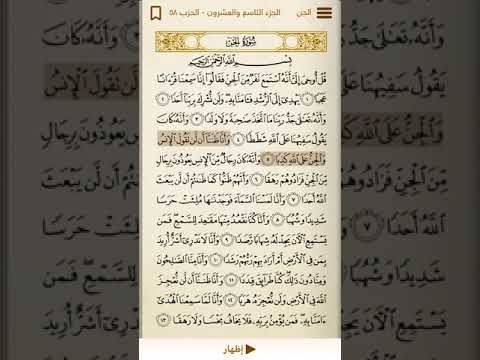 الجن
الجزء التاسع والعشرون - الحزب ٥٨
سُورَةُ الجِنِّ
بِسْمِ ٱللَّهِ ٱلرَّحْمَٰنِ ٱلرَّحِيمِ
قُلْ أُوحِيَ إِلَيَّ أَنَّهُ ٱسْتَمَعَ نَفَرٌ مِّنَ ٱلْجِنِّ فَقَالُوٓا۟ إِنَّا سَمِعْنَا قُرْءَانًا
عَجَبًا ١ يَهْدِىٓ إِلَى ٱلرُّشْدِ فَـَٔامَنَّا بِهِۦ وَلَن نُّشْرِكَ بِرَبِّنَآ أَحَدًا ٢
وَأَنَّهُۥ تَعَٰلَىٰ جَدُّ رَبِّنَا مَا ٱتَّخَذَ صَٰحِبَةً وَلَا وَلَدًا ٣ وَأَنَّهُۥ كَانَ
يَقُولُ سَفِيهُنَا عَلَى ٱللَّهِ شَطَطًا ٤ وَأَنَّا ظَنَنَّآ أَن لَّن تَقُولَ ٱلْإِنسُ
وَٱلْجِنُّ عَلَى ٱللَّهِ كَذِبًا ٥ وَأَنَّهُۥ كَانَ رِجَالٌ مِّنَ ٱلْإِنسِ يَعُوذُونَ بِرِجَالٍ
مِّنَ ٱلْجِنِّ فَزَادُوهُمْ رَهَقًا ٦ وَأَنَّهُمْ ظَنُّوا۟ كَمَا ظَنَنتُمْ أَن لَّن يَبْعَثَ
ٱللَّهُ أَحَدًا ٧ وَأَنَّا لَمَسْنَا ٱلسَّمَآءَ فَوَجَدْنَٰهَا مُلِئَتْ حَرَسًا
شَدِيدًا وَشُهُبًا ٨ وَأَنَّا كُنَّا نَقْعُدُ مِنْهَا مَقَٰعِدَ لِلسَّمْعِ فَمَن
يَسْتَمِعِ ٱلْـَٔانَ يَجِدْ لَهُۥ شِهَابًا رَّصَدًا ٩ وَأَنَّا لَا نَدْرِىٓ أَشَرٌّ أُرِيدَ
بِمَن فِى ٱلْأَرْضِ أَمْ أَرَادَ بِهِمْ رَبُّهُمْ رَشَدًا ١٠ وَأَنَّا مِنَّا ٱلصَّٰلِحُونَ
وَمِنَّا دُونَ ذَٰلِكَ كُنَّا طَرَآئِقَ قِدَدًا ١١ وَأَنَّا ظَنَنَّآ أَن لَّن نُّعْجِزَ
ٱللَّهَ فِى ٱلْأَرْضِ وَلَن نُّعْجِزَهُۥ هَرَبًا ١٢ وَأَنَّا لَمَّا سَمِعْنَا ٱلْهُدَىٰٓ
ءَامَنَّا بِهِۦ فَمَن يُؤْمِنۢ بِرَبِّهِۦ فَلَا يَخَافُ بَخْسًا وَلَا رَهَقًا ١٣
إظهار